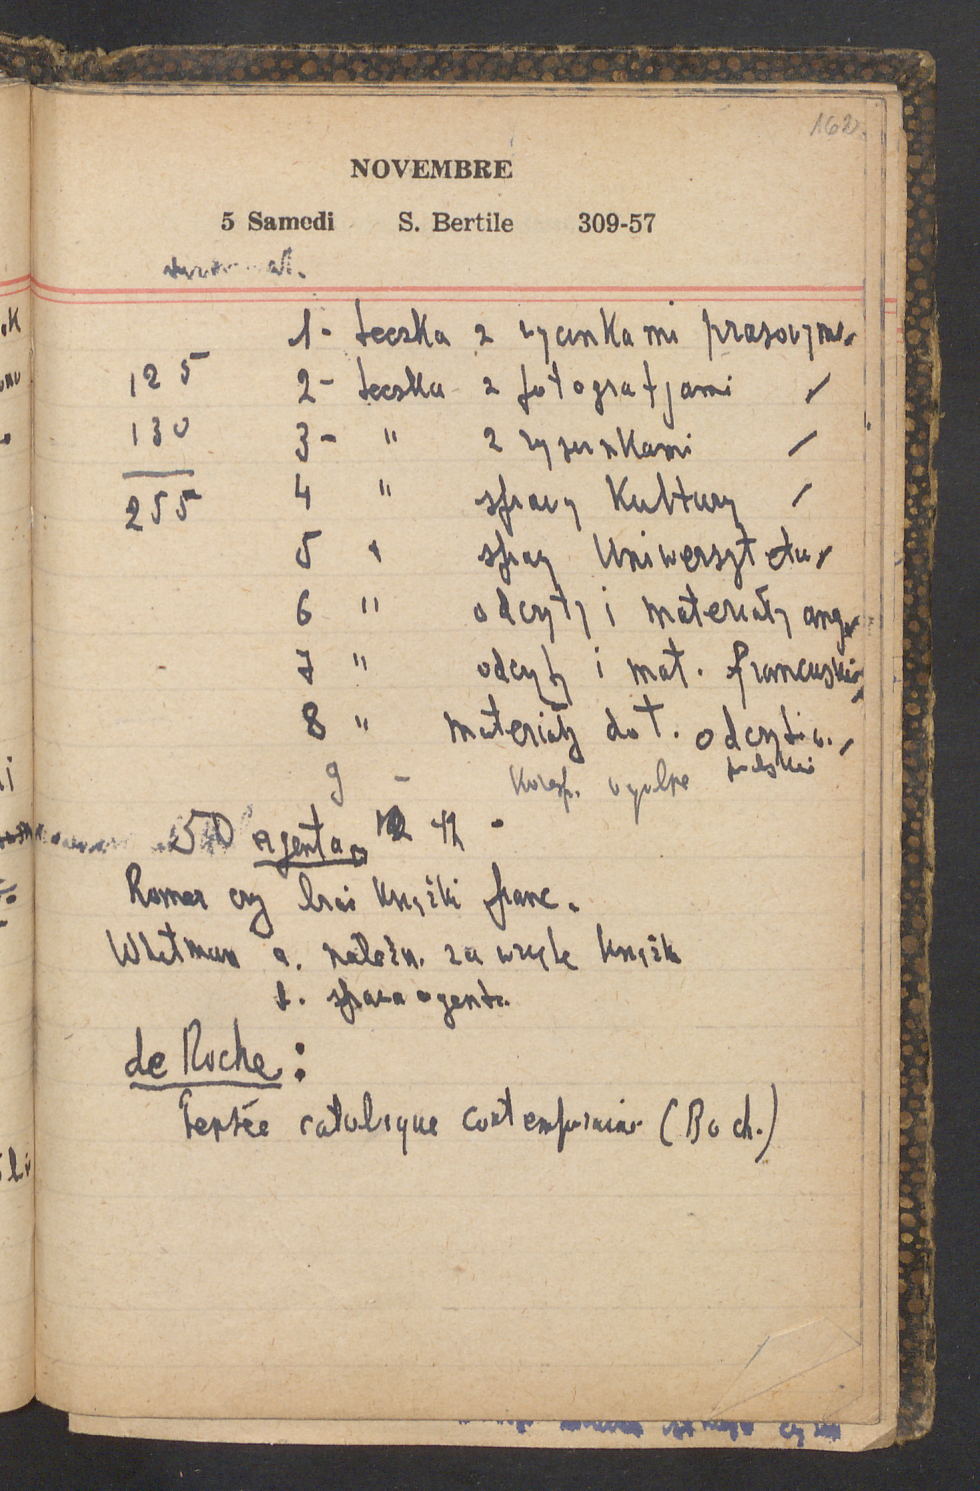 162
NOVEMBRE
5 Samedi S. Bertile 309-57
1- teczka z wycinkami prasowymi
125
2- teczka z fotografjami ✓
130
3- " z rysunkami ✓
255
4 " sprawy Kultury ✓
5 " spraw Uniwersytetu ✓
6 " odczyty i materiały ang ✓
7 " odczyty i mat. francuskie
8 " materiały dot. odczytów. ✓
polskie
9 - Koresp. ogólne
50 agenta
Romer czy brać książki franc.
Whitman a. należn. za wzięte książk
b. sprawa agenta
de Roche:
Pensée catolique contemporaine (Boch.)